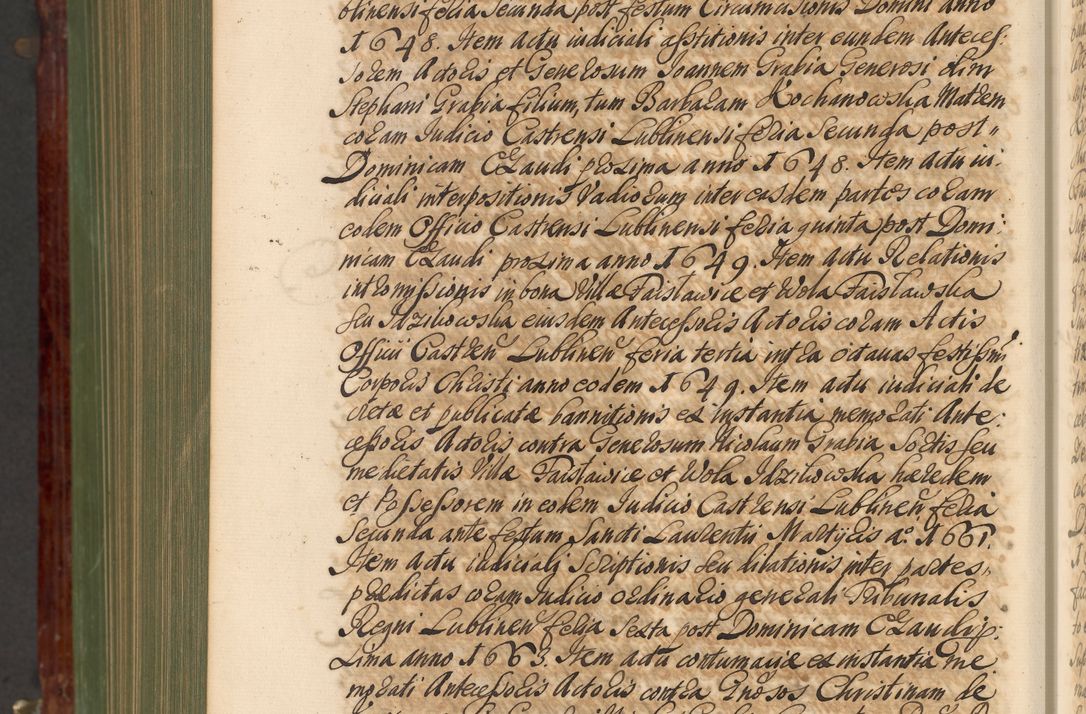 blinensi feria Secunda post festum Circumcisionis Domini anno
1648. Item actu iudiciali astitionis inter eundem Anteces:
sorem Actoris et Generosum Joannem Grabia Generosi olim
Stephani Grabia filium, tum Barbaram Kochanowska Matrem
coram Judicio Castrensi Lublinensi feria Secunda post
Dominicam Exaudi proxima anno 1648. Item actu iu:
diciali interpositionis Vadiorum inter easdem partes coram
eodem Officio Castrensi Lublinensi feria quinta post Domi:
nicam Exaudi proxima anno 1649. Item actu Relationis
intromissionis in bona Villæ Faisławice et Wola Faisławska
seu Idzikowska eiusdem Antecessoris Actoris coram Actis
Officii Castren Lublinen feria tertia intra octavas festi ssmi
Corporis Christi anno eodem 1649. Item actu iudiciali de
cretæ et publicatæ bannitionis ex instantia memorati Ante:
cessoris Actoris contra Generosum Nicolaum Grabia Sortis seu
medietatis Villæ Faisławice et Wola Idzikowska hæredem
et Possessorem in eodem Judicio Castrensi Lublinen feria
Secunda ante festum Sancti Laurentii Martyris a° 1661.
Item actu iudiciali Scriptionis seu dilationis inter partes
prædictas coram Judicio ordinario generali Tribunalis
Regni Lublinen feria Sexta post Dominicam Exaudi p:
xima anno 1663. Item actu contumaciæ ex instantia me
morati Antecessoris Actoris contra Gnosos Christinam de